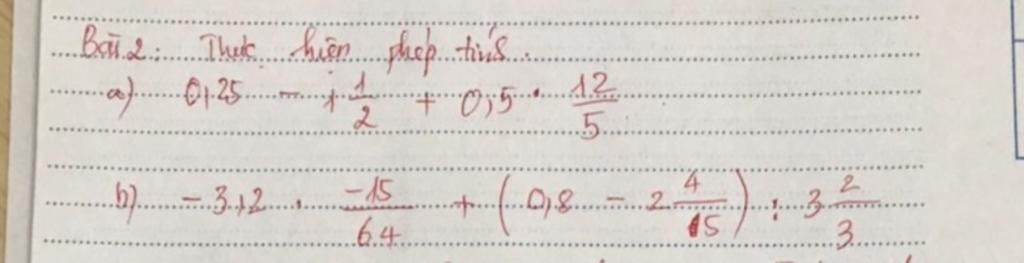 Bài 2: Thực hiện phép tính.
a) 0,25 - 1 1/2 + 0,5 . 12/5
b) -3,2 . -15/64 + (0,8 - 2 4/15) : 3 2/3